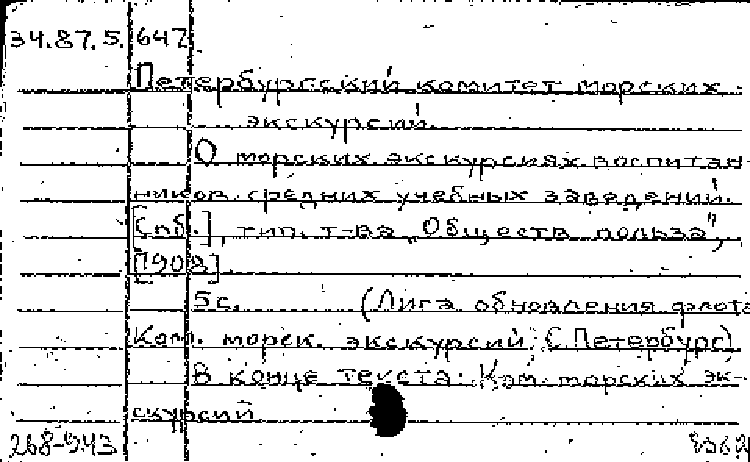 34.87.5.647
Петербургский комитет морских
экскурсий.
О морских экскурсиях воспитан-
ников средних учебных заведений.
[Спб.], тип. т-ва "Обществ. польза",
[1908].
5с. (Лига обновления флота
Ком. морск. экскурсий. С.Петербург)
В конце текста: Ком. морских эк-
скурсий
268-943